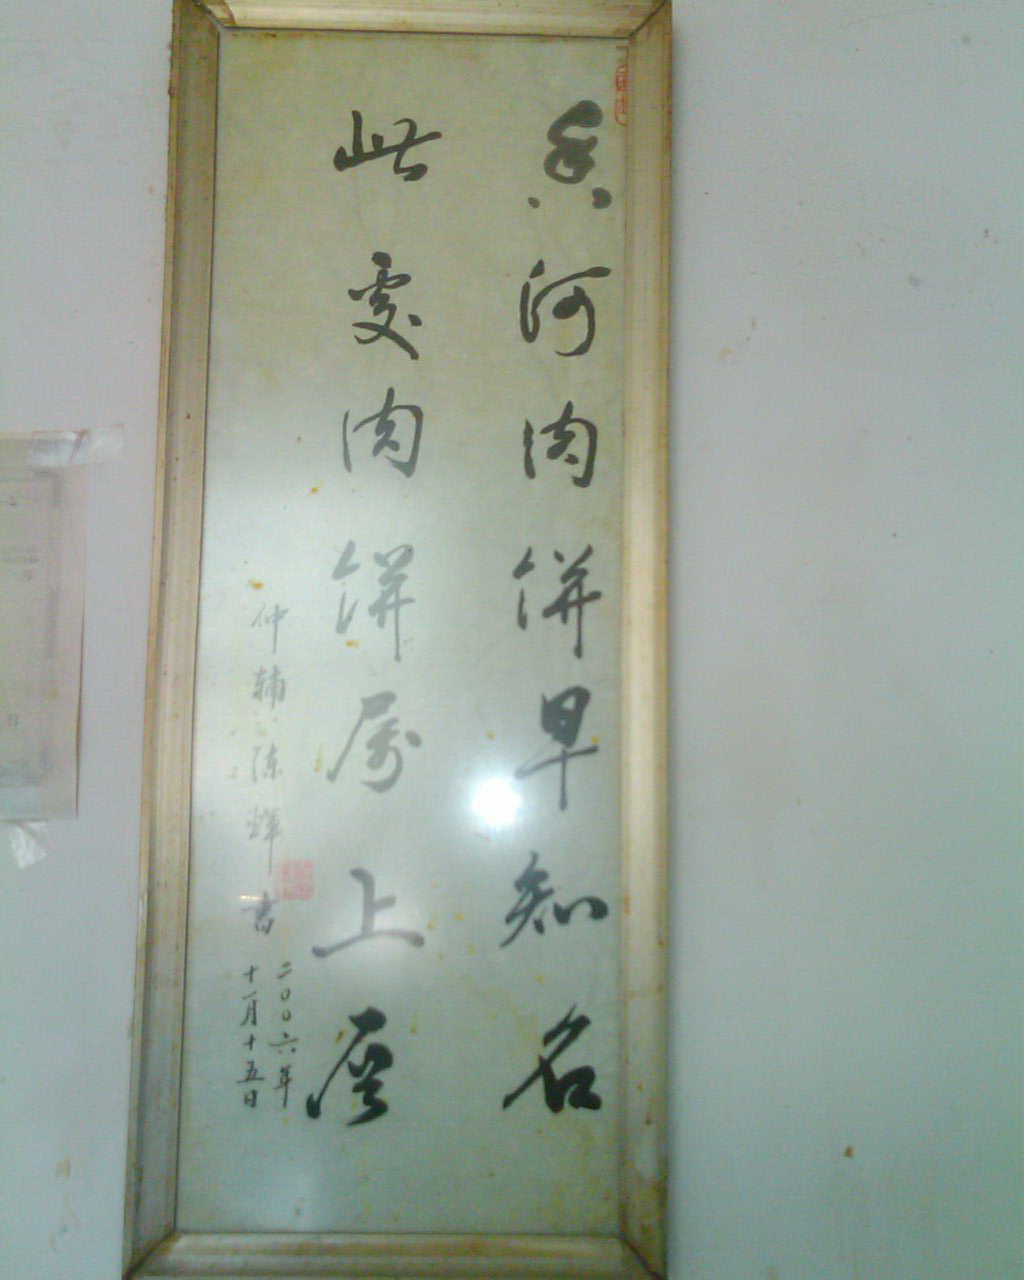 香河肉饼早知名
此處肉饼属上层
仲辅陈辉书
二〇〇六年
十一月十五日
日